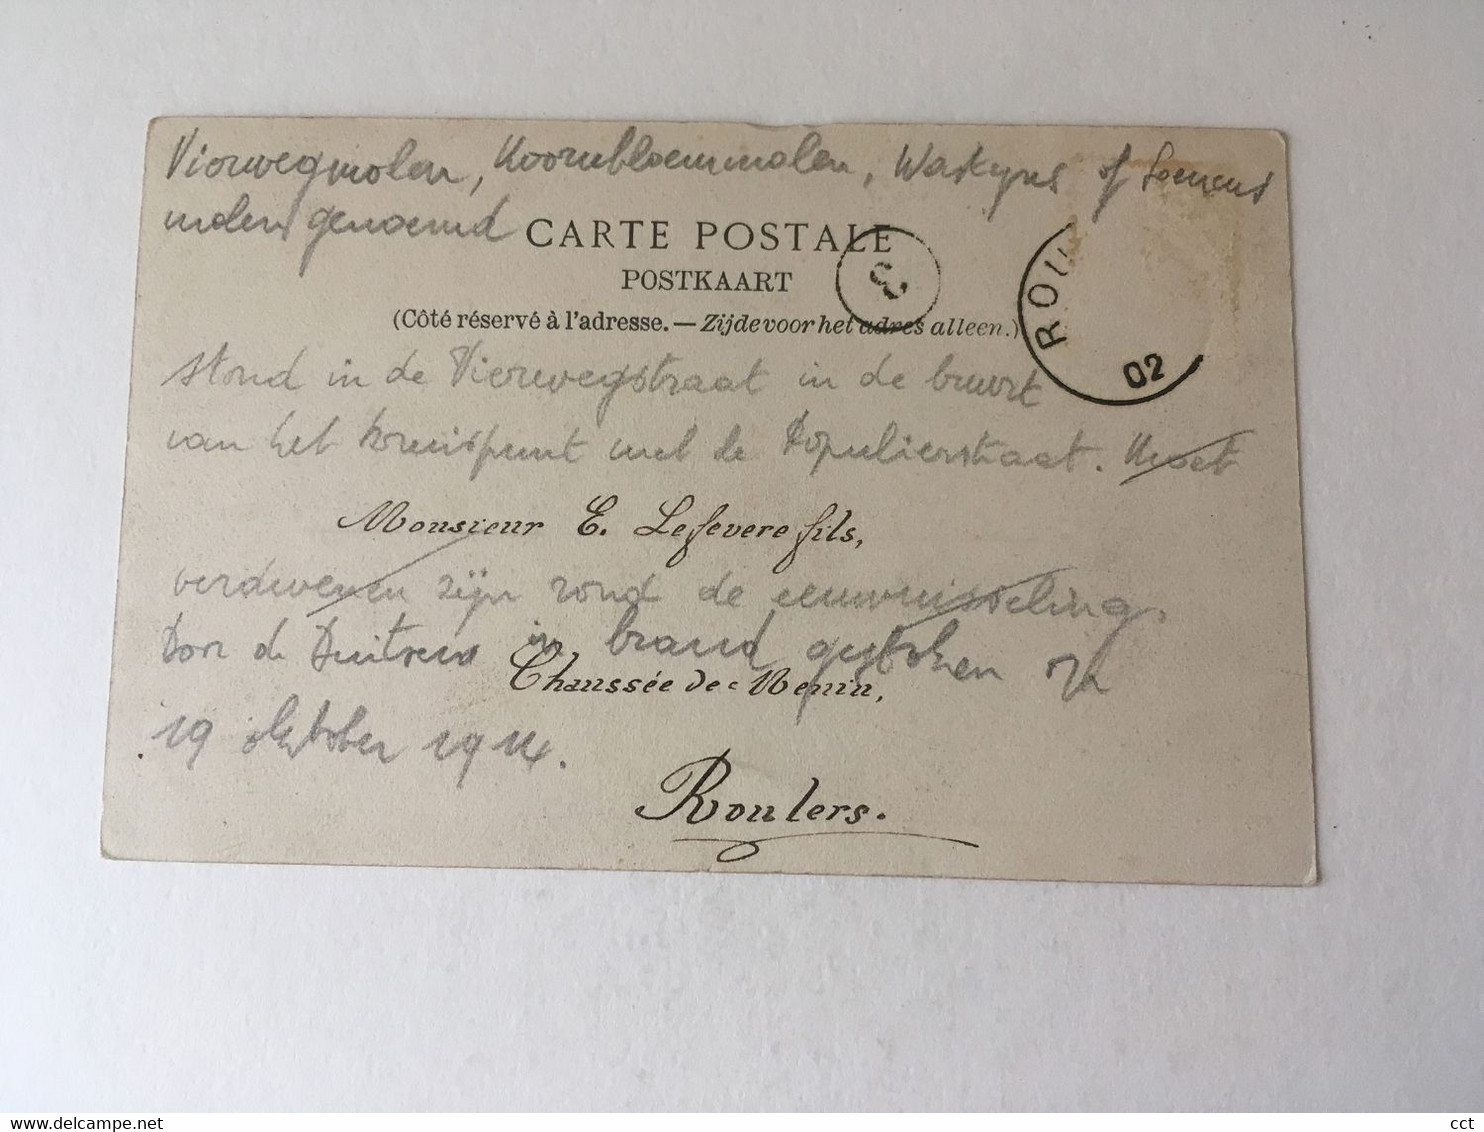 Vierwegmolen, Koornbloemmolen, Waskyns of Seenens
molen genoemd
CARTE POSTALE
POSTKAART
(Côté réservé à l'adresse. — Zijde voor het adres alleen.)
ROU
02
stond in de Vierwegstraat in de buurt
van het kruispunt met de Populierstraat. Moet
Monsieur E. Lefevere fils,
verdwenen zijn rond de eeuwwisseling.
Door de Duitsers in brand gestoken op
Chaussée de Menin,
19 oktober 1914.
Roulers.
delcampe.net
cct